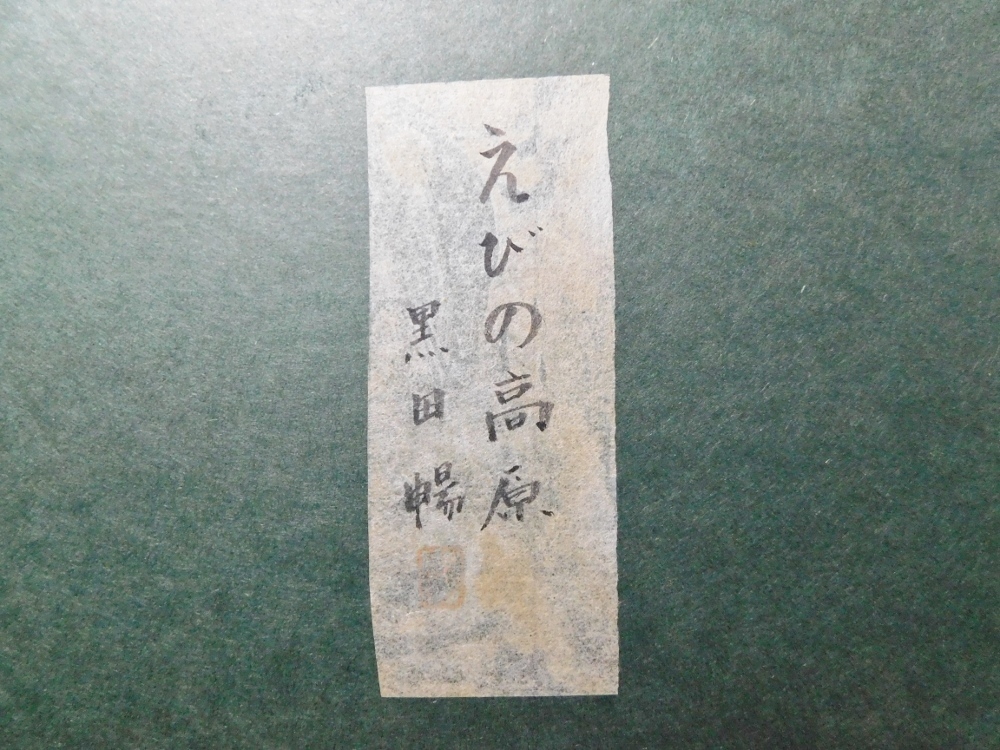 えびの高原
黒田暢